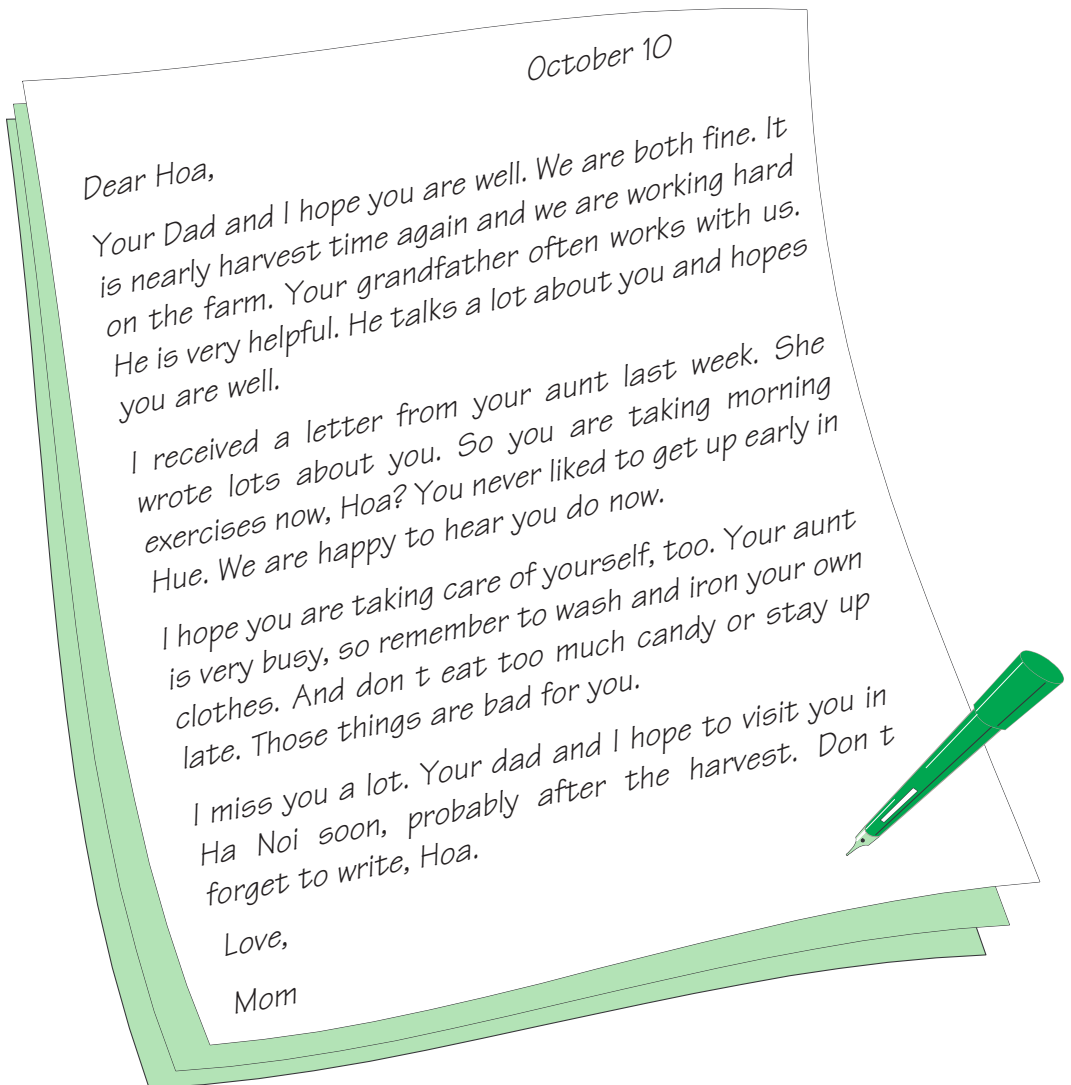 October 10
Dear Hoa,
Your Dad and I hope you are well. We are both fine. It
is nearly harvest time again and we are working hard
on the farm. Your grandfather often works with us.
He is very helpful. He talks a lot about you and hopes
you are well.
I received a letter from your aunt last week. She
wrote lots about you. So you are taking morning
exercises now, Hoa? You never liked to get up early in
Hue. We are happy to hear you do now.
I hope you are taking care of yourself, too. Your aunt
is very busy, so remember to wash and iron your own
clothes. And don t eat too much candy or stay up
late. Those things are bad for you.
I miss you a lot. Your dad and I hope to visit you in
Ha Noi soon, probably after the harvest. Don t
forget to write, Hoa.
Love,
Mom